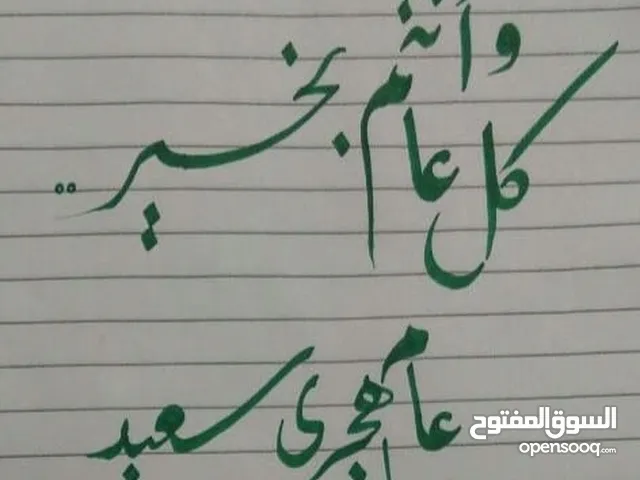 كل عام وأنتم بخير ..
عام هجري سعيد
السوق المفتوح
opensooq.com